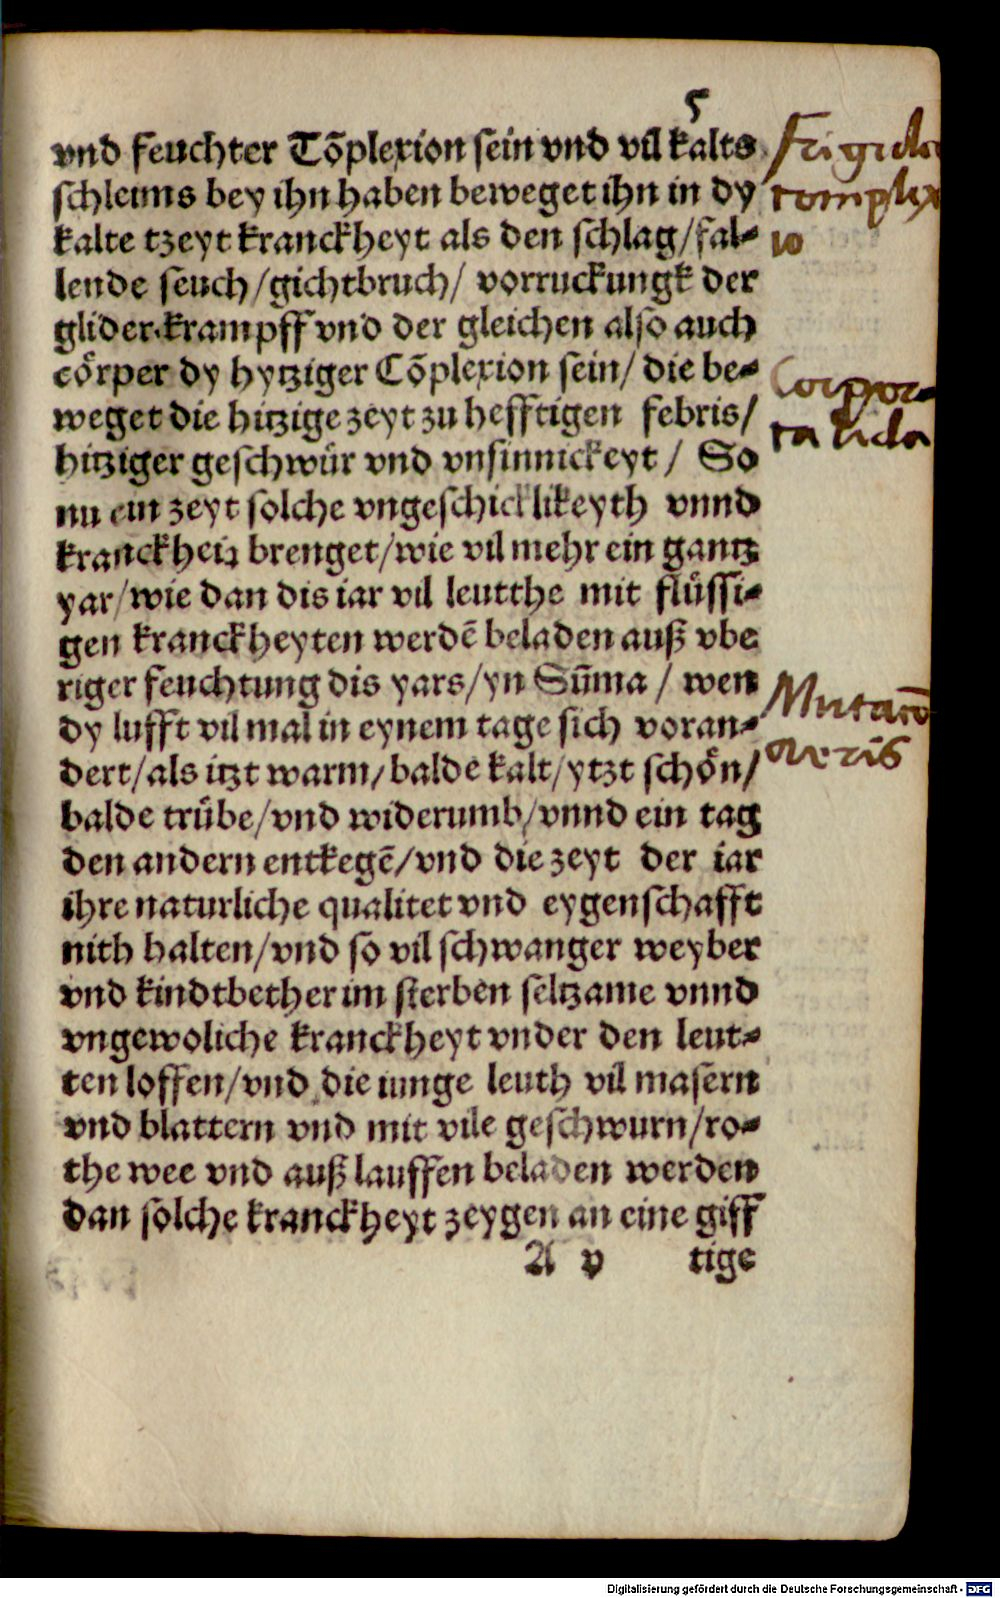 5
vnd feuchter Cõplexion sein vnd vil kalts
schleims bey ihn haben beweget ihn in dy
kalte tzeyt kranckheyt als den schlag/fal-
lende seuch/gichtbruch/ vorruckungk der
glider.krampff vnd der gleichen also auch
cörper dy hytziger Cõplexion sein/ die be-
weget die hitzige zeyt zu hefftigen febris/
hitziger geschwür vnd vnsinnickeyt/ So
nu ein zeyt solche vngeschicklikeyth vnnd
kranckheit brenget/wie vil mehr ein gantz
yar/wie dan dis iar vil leutthe mit flüssi-
gen kranckheyten werdẽ beladen auß vbe
riger feuchtung dis yars/yn Sũma/ wen
dy lufft vil mal in eynem tage sich voran-
dert/als itzt warm/balde kalt/ytzt schön/
balde trübe/vnd widerumb/vnnd ein tag
den andern entkegẽ/vnd die zeyt der iar
ihre naturliche qualitet vnd eygenschafft
nith halten/vnd so vil schwanger weyber
vnd kindtbether im sterben seltzame vnnd
vngewoliche kranckheyt vnder den leut-
ten loffen/vnd die iunge leuth vil masern
vnd blattern vnd mit vile geschwurn/ro-
the wee vnd auß lauffen beladen werden
dan solche kranckheyt zeygen an eine giff
A v tige
Frigida
complex
io
Corpora
calida
Mutatiõ
aeris
Digitalisierung gefördert durch die Deutsche Forschungsgemeinschaft - DFG